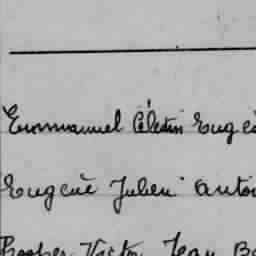 Emmanuel Célestin Eugè
Eugène Julien Anto
Victor Jean Ba